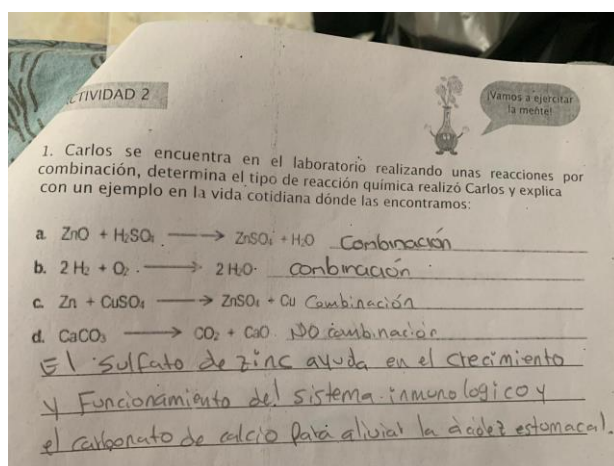 CTIVIDAD 2
¡Vamos a ejercitar
la mente!
1. Carlos se encuentra en el laboratorio realizando unas reacciones por
combinación, determina el tipo de reacción química realizó Carlos y explica
con un ejemplo en la vida cotidiana dónde las encontramos:
a. ZnO + H₂SO₄ ⟶ ZnSO₄ + H₂O Combinación
b. 2 H₂ + O₂ ⟶ 2 H₂O combinación
c. Zn + CuSO₄ ⟶ ZnSO₄ + Cu Combinación
d. CaCO₃ ⟶ CO₂ + CaO NO combinación
El sulfato de zinc ayuda en el crecimiento
y Funcionamiento del sistema inmunologico y
el carbonato de calcio para aliviar la ácidez estomacal.